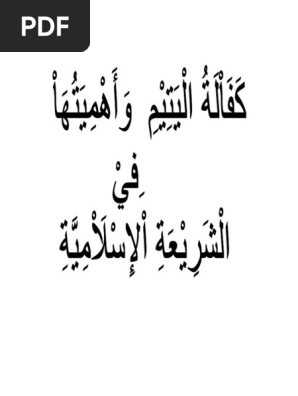 PDF
كَفَاْلَةُ الْيَتِيْمِ وَأَهْمِيَتُهَاْ
فِيْ
الْشَرِيْعَةِ اْلإِسْلَاْمِيَّةِ